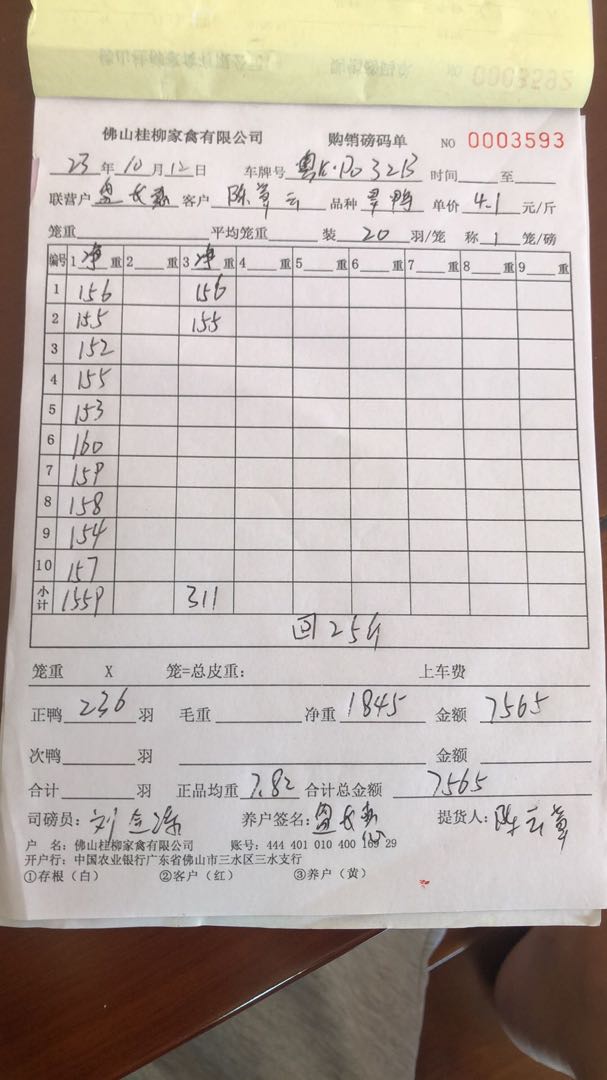 0003592
佛山桂柳家禽有限公司 购销磅码单 NO 0003593
23年10月12日 车牌号 粤K·P032B 时间 至
联营户 客户 陈草云 品种 草鸭 单价 4.1 元/斤
笼重 平均笼重 装 20 羽/笼 称 1 笼/磅
编号 1 净 重 2 重 3 净 重 4 重 5 重 6 重 7 重 8 重 9 重
1 156 156
2 155 155
3 152
4 155
5 153
6 160
7 159
8 158
9 154
10 157
小计 1559 311
回25斤
笼重 X 笼=总皮重: 上车费
正鸭 236 羽 毛重 净重 1845 金额 7565
次鸭 羽 金额
合计 羽 正品均重 7.82 合计总金额 7565
司磅员: 刘 养户签名: 提货人: 陈云草
户 名: 佛山桂柳家禽有限公司 账号: 444 401 010 400 169 29
开户行: 中国农业银行广东省佛山市三水区三水支行
①存根(白) ②客户(红) ③养户(黄)